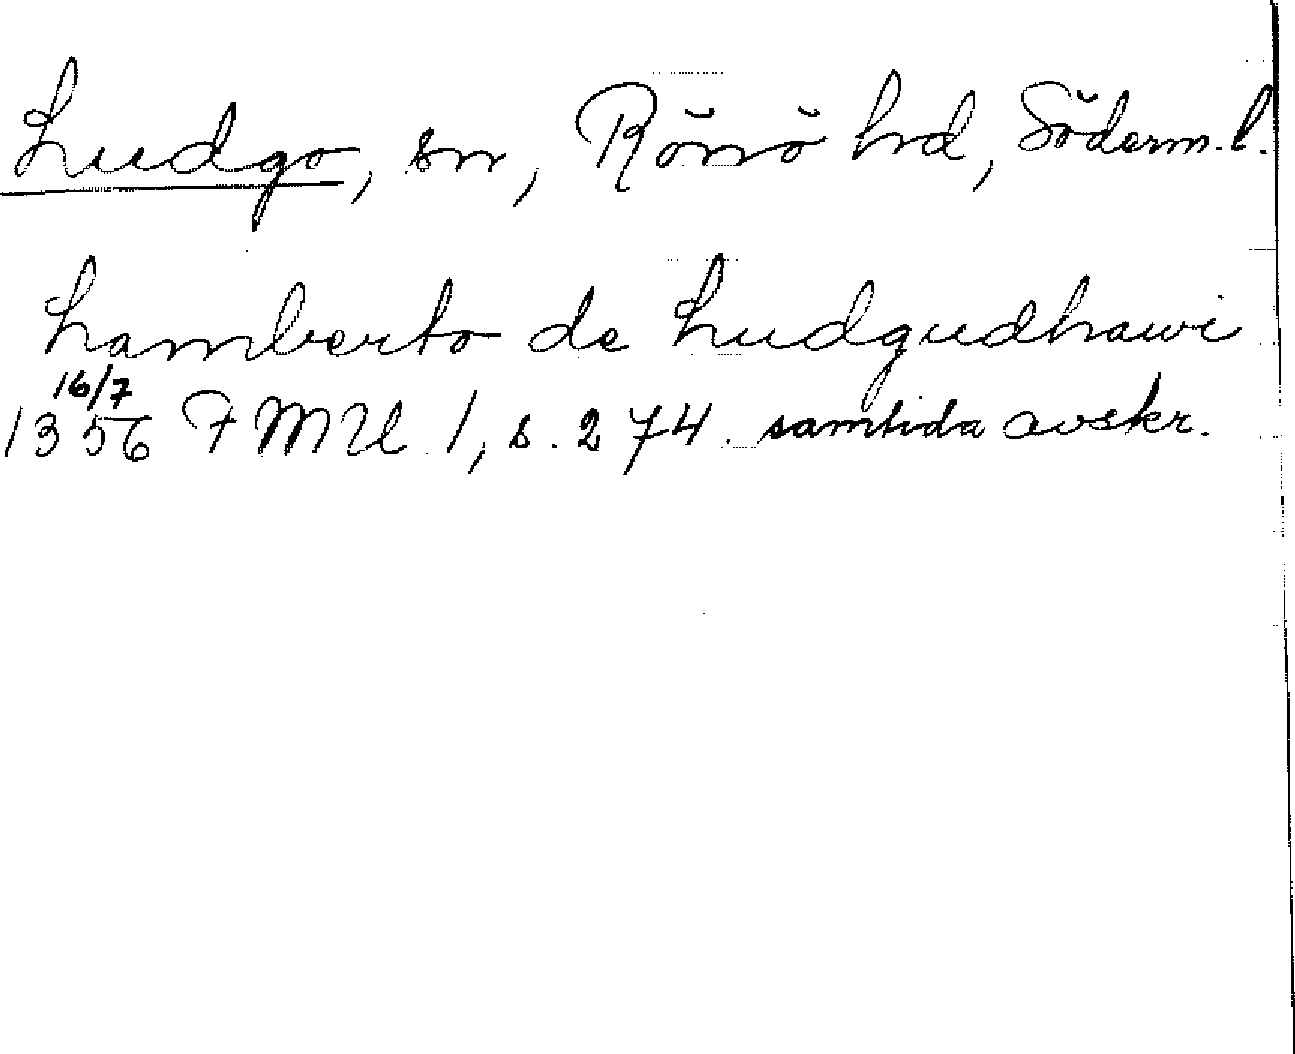 Ludgo, sn, Rönö hd, Söderm.l.
Lamberto de Ludgudhawi
16/7
1356 FMU 1, s. 274. samtida avskr.